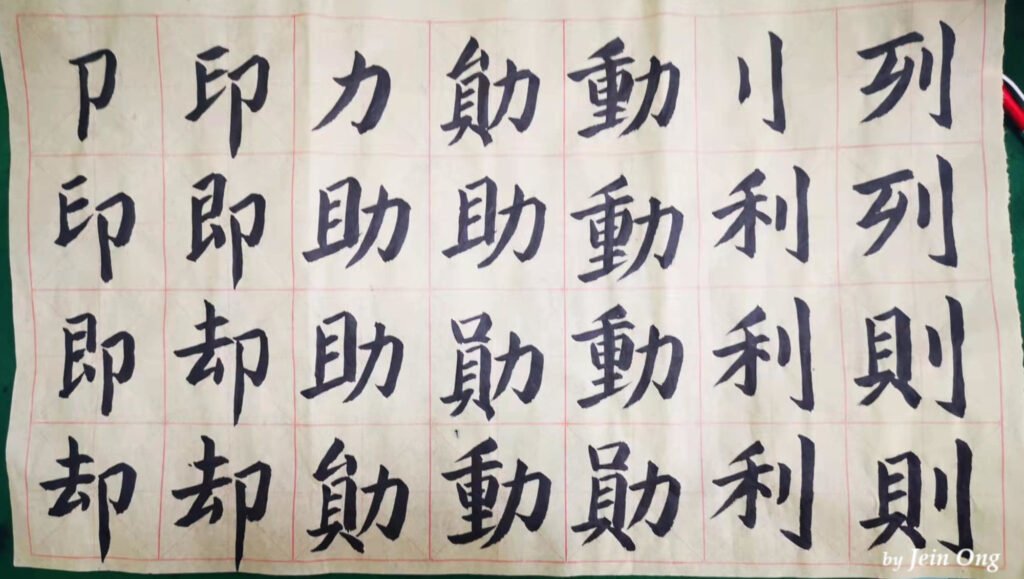 卩印即却
印即却却
力助助勛
勛助勛動
動動動勛
刂利利利
列列則則
by Jein Ong